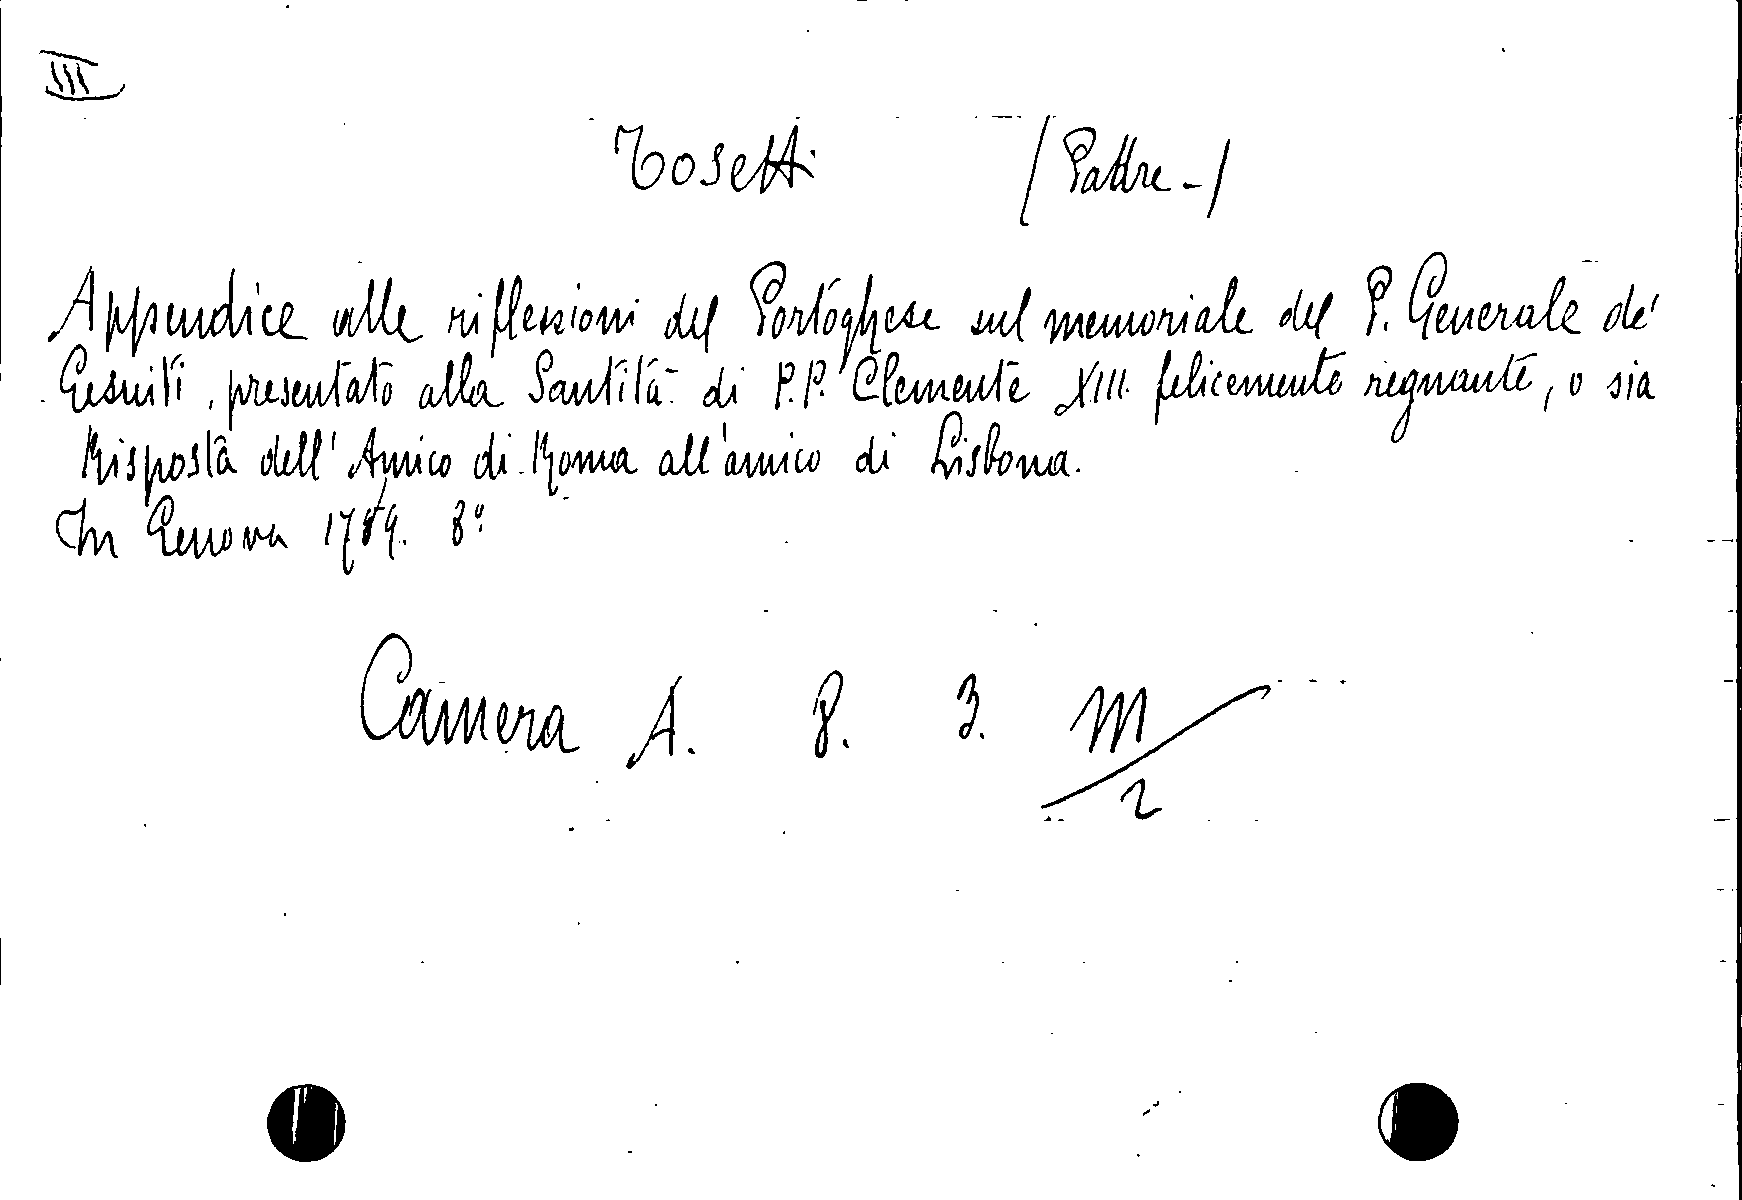 III
Tosetti (Padre -)
Appendice alle riflessioni del Portoghese sul memoriale del P. Generale de'
Gesuiti, presentato alla Santità di P.P. Clemente XIII. felicemente regnante, o sia
Risposta dell'Amico di Roma all'amico di Lisbona.
In Genova 1759. 8°
Camera A. 8. 3. m/2